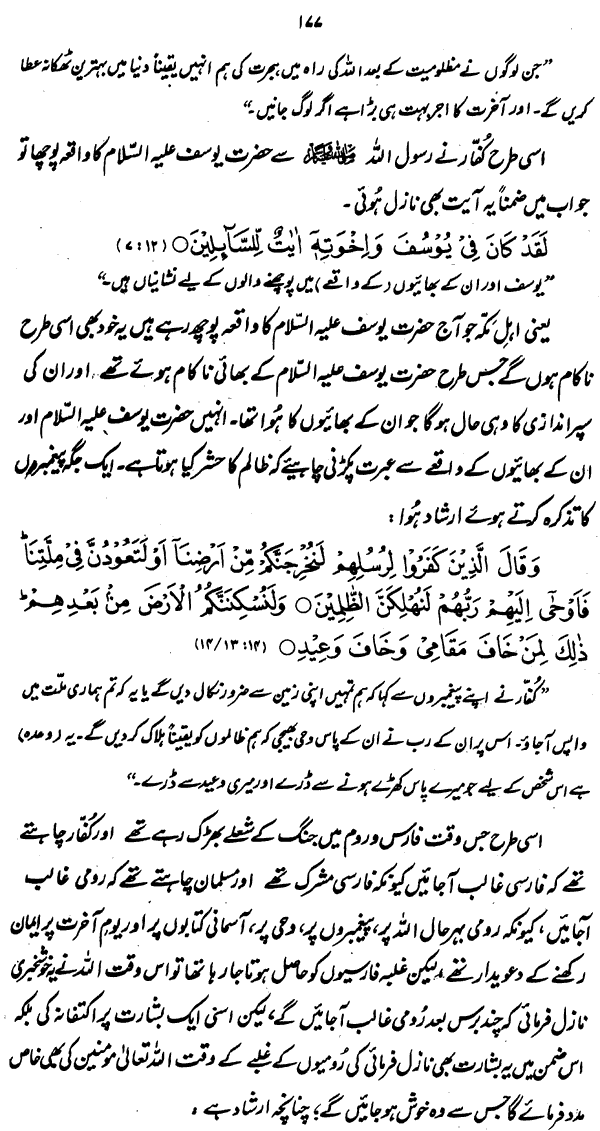 ۱۷۷
”جن لوگوں نے مظلومیت کے بعد اللہ کی راہ میں ہجرت کی ہم انہیں یقیناً دنیا میں بہترین ٹھکانہ عطا
کریں گے۔ اور آخرت کا اجر بہت ہی بڑا ہے اگر لوگ جانیں۔“
اسی طرح کُفّار نے رسول اللہ ﷺ سے حضرت یوسف علیہ السّلام کا واقعہ پوچھا تو
جواب میں ضمناً یہ آیت بھی نازل ہُوئی۔
لَقَدْ كَانَ فِيْ يُوْسُفَ وَاِخْوَتِهٖٓ اٰيٰتٌ لِّلسَّآىِٕلِيْنَ○ (۷:۱۲)
”یوسف اور ان کے بھائیوں (کے واقعے) میں پوچھنے والوں کے لیے نشانیاں ہیں۔“
یعنی اہلِ مکّہ جو آج حضرت یوسف علیہ السّلام کا واقعہ پوچھ رہے ہیں یہ خود بھی اسی طرح
ناکام ہوں گے جس طرح حضرت یوسف علیہ السّلام کے بھائی ناکام ہوئے تھے، اور ان کی
سپر اندازی کا وہی حال ہوگا جو ان کے بھائیوں کا ہُوا تھا۔ انہیں حضرت یوسف علیہ السّلام اور
ان کے بھائیوں کے واقعے سے عبرت پکڑنی چاہیئے کہ ظالم کا حشر کیا ہوتا ہے۔ ایک جگہ پیغمبروں
کا تذکرہ کرتے ہوئے ارشاد ہُوا:
وَقَالَ الَّذِيْنَ كَفَرُوْا لِرُسُلِهِمْ لَنُخْرِجَنَّكُمْ مِّنْ اَرْضِنَآ اَوْ لَتَعُوْدُنَّ فِيْ مِلَّتِنَا ؕ
فَاَوْحٰٓى اِلَيْهِمْ رَبُّهُمْ لَنُهْلِكَنَّ الظّٰلِمِيْنَ○ وَلَنُسْكِنَنَّكُمُ الْاَرْضَ مِنْۢ بَعْدِهِمْ ؕ
ذٰلِكَ لِمَنْ خَافَ مَقَامِيْ وَخَافَ وَعِيْدِ○ (۱۴/۱۳:۱۴)
”کُفّار نے اپنے پیغمبروں سے کہا کہ ہم تمہیں اپنی زمین سے ضرور نکال دیں گے یا یہ کہ تم ہماری ملّت میں
واپس آجاؤ۔ اس پر ان کے رب نے ان کے پاس وحی بھیجی کہ ہم ظالموں کو یقیناً ہلاک کر دیں گے۔ یہ (وعدہ)
ہے اس شخص کے لیے جو میرے پاس کھڑے ہونے سے ڈرے اور میری وعید سے ڈرے۔“
اسی طرح جس وقت فارس و روم میں جنگ کے شعلے بھڑک رہے تھے اور کُفّار چاہتے
تھے کہ فارسی غالب آجائیں کیونکہ فارسی مشرک تھے اور مسلمان چاہتے تھے کہ رومی غالب
آجائیں، کیونکہ رومی بہرحال اللہ پر، پیغمبروں پر، وحی پر، آسمانی کتابوں پر اور یومِ آخرت پر ایمان
رکھنے کے دعویدار تھے، لیکن غلبہ فارسیوں کو حاصل ہوتا جا رہا تھا تو اس وقت اللہ نے یہ خوشخبری
نازل فرمائی کہ چند برس بعد رُومی غالب آجائیں گے، لیکن اسی ایک بشارت پر اکتفا نہ کی بلکہ
اس ضمن میں یہ بشارت بھی نازل فرمائی کی رُومیوں کے غلبے کے وقت اللہ تعالیٰ مؤمنین کی بھی خاص
مدد فرمائے گا جس سے وہ خوش ہو جائیں گے؛ چنانچہ ارشاد ہے: